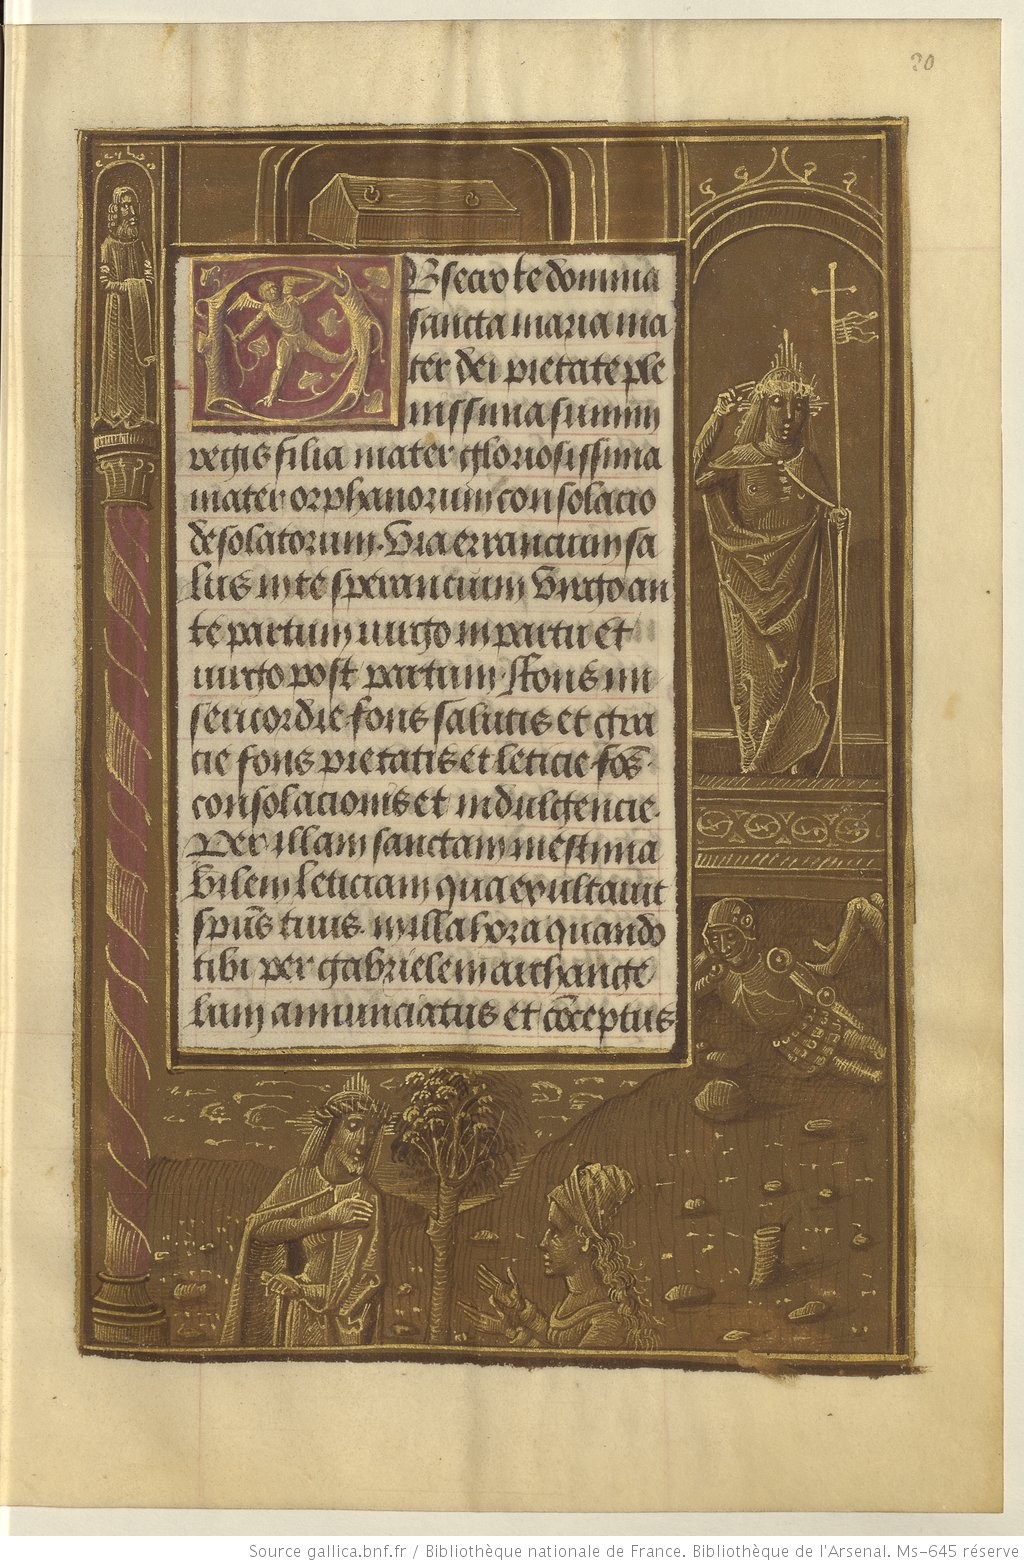 20
Obsecro te domina
sancta maria ma
ter dei pietate ple
nissima summi
regis filia mater gloriosissima
mater orphanorum consolacio
desolatorum. Via errancium sa
lus in te sperancium Virgo an
te partum uirgo in partu et
uirgo post partum. Fons mi
sericordie fons salutis et gra
cie fons pietatis et leticie fōs.
consolacionis et indulgencie.
Per illam sanctam inestima
bilem leticiam qua exultauit
spūs tuus. in illa hora quando
tibi per gabrielem archange
lum annunciatus et cōceptus
Source gallica.bnf.fr / Bibliothèque nationale de France. Bibliothèque de l'Arsenal. Ms-645 réserve